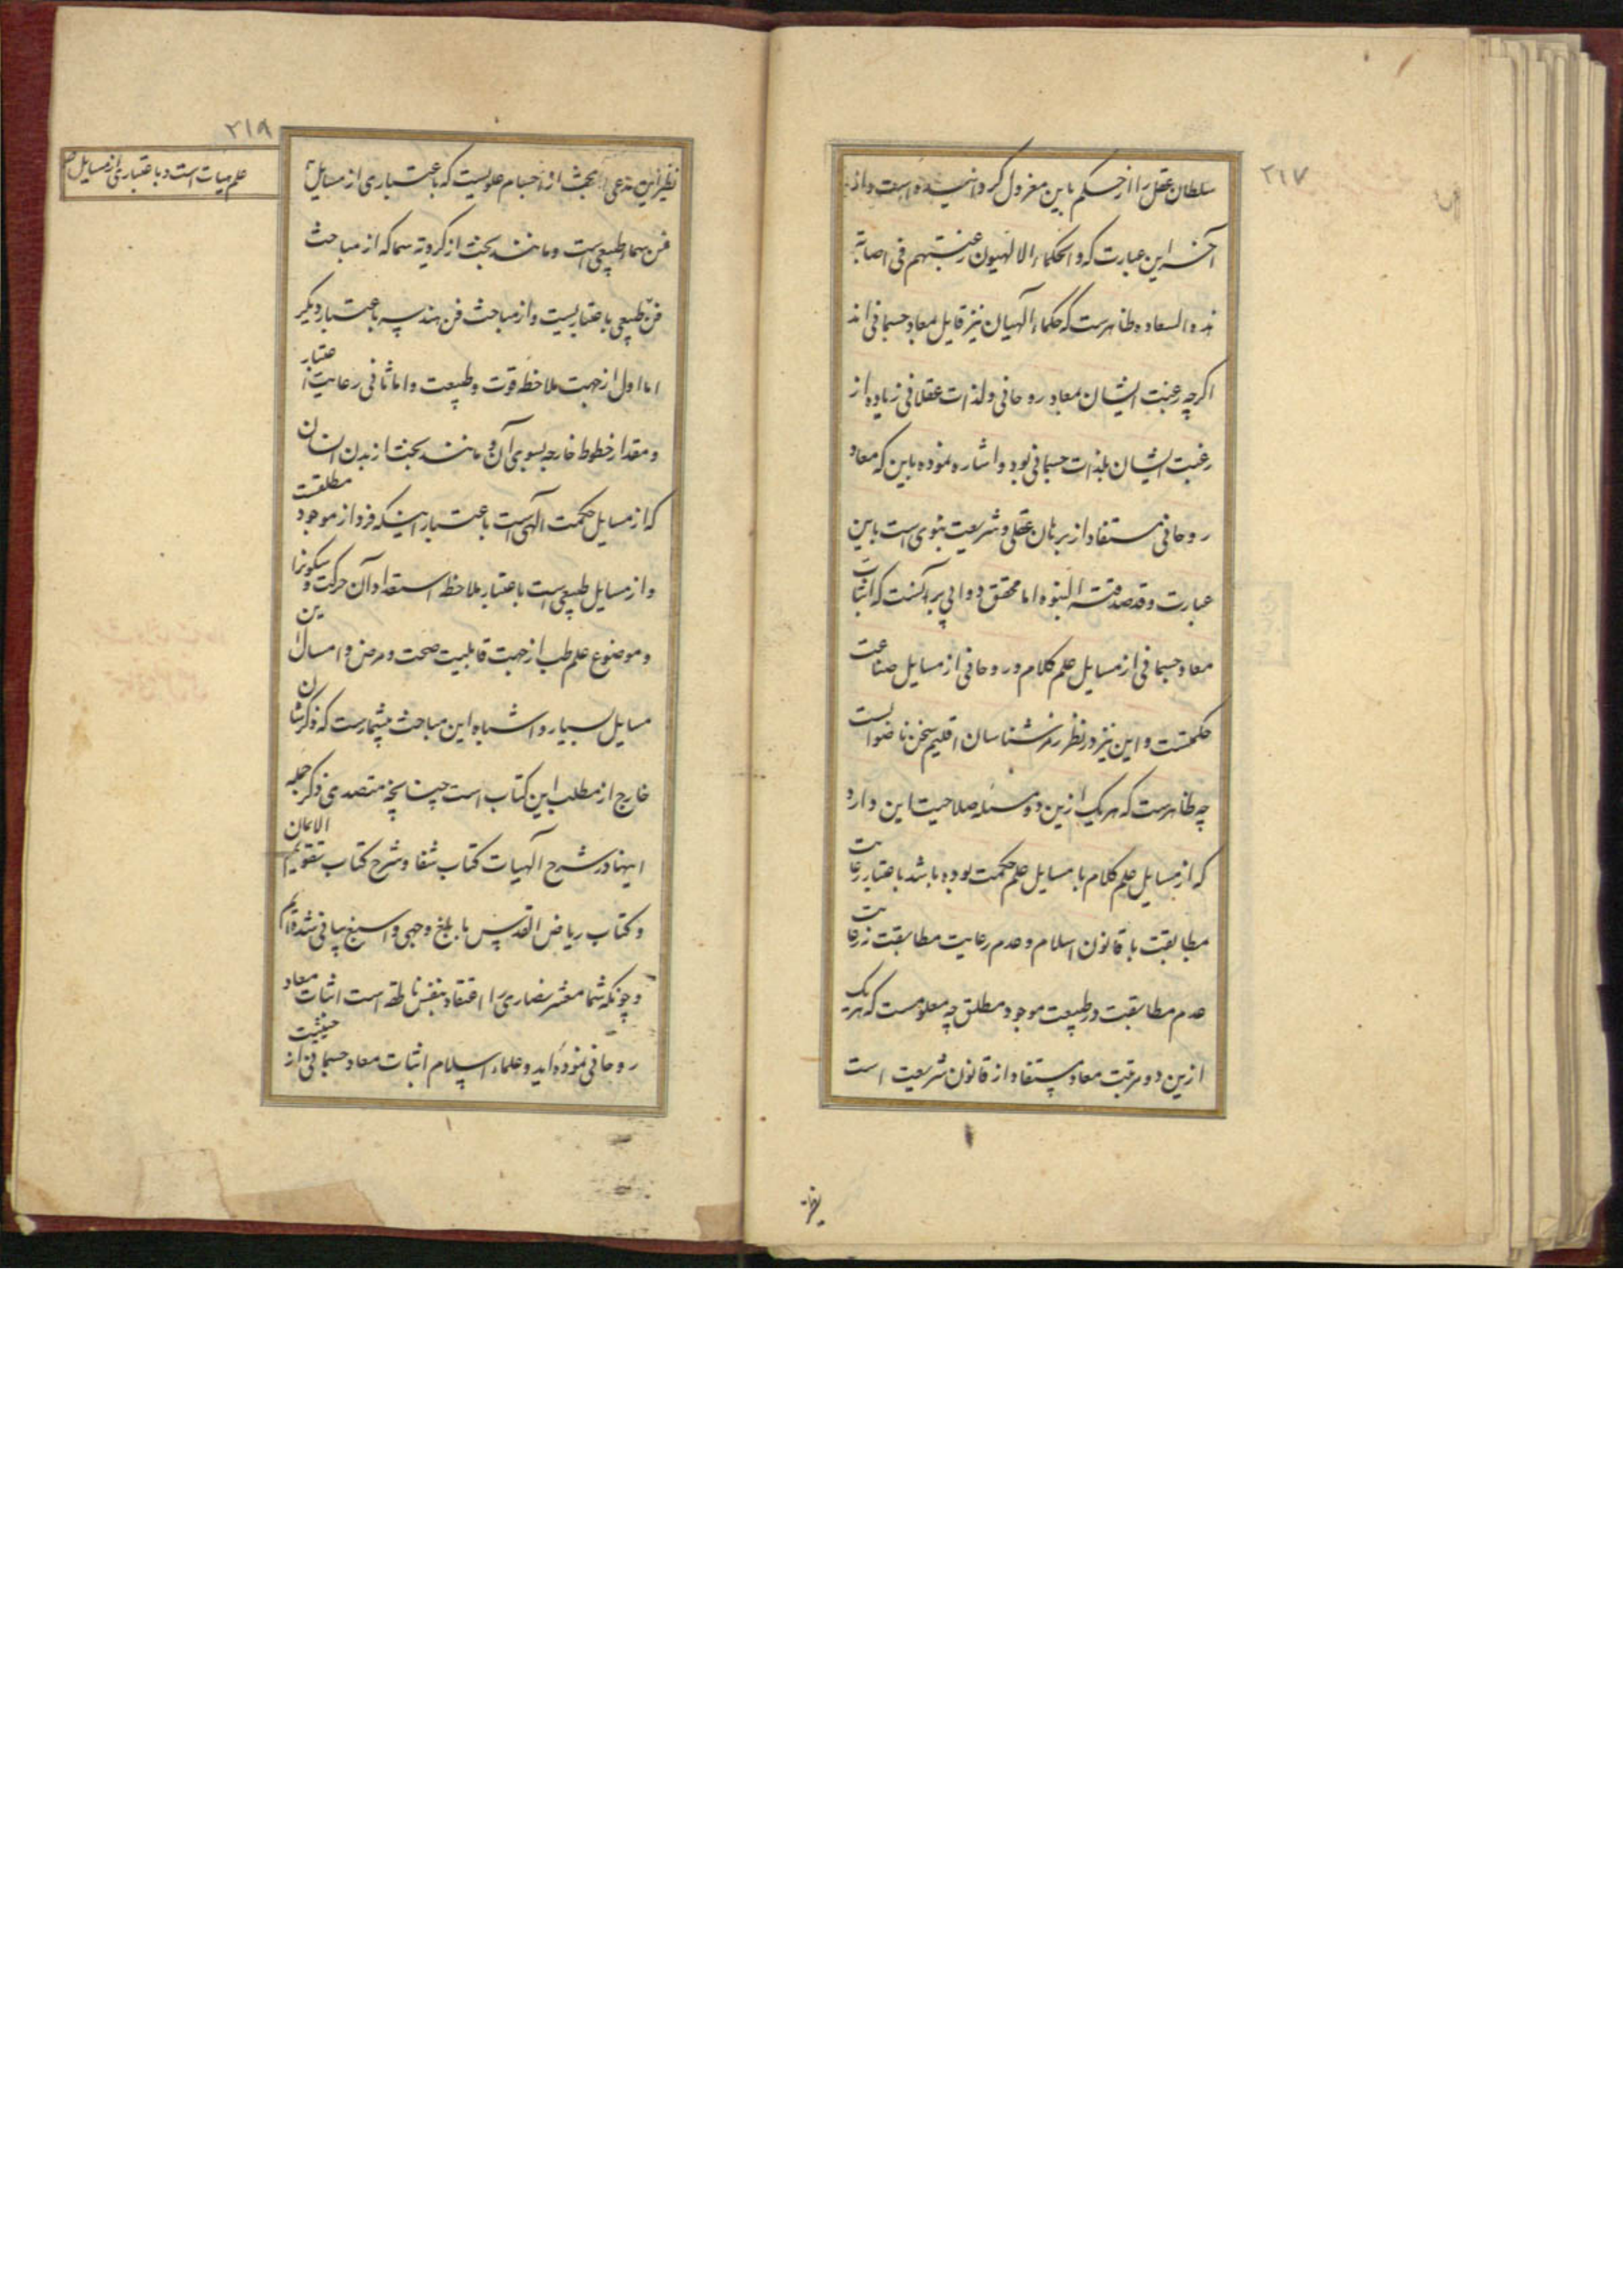 ۲۱۷
سلطان عقل را از حکم باین معزول کردانیده است و از
آخر این عبارت که والحکماء الالهیون رغبتهم فی اصابة
هذه السعاده ظاهرست که حکماء آلهیان نیز قایل بمعاد جسمانی اند
اکرچه رغبت ایشان بمعاد روحانی و لذات عقلانی زیاده از
رغبت ایشان بلذات جسمانی بود و اشاره نموده باین که معاد
روحانی مستفاد از برهان عقلی و شریعت نبوی است باین
عبارت و قد صدقته النبوه اما محقق دوانی بر آنست که اثبات
معاد جسمانی از مسایل علم کلام و روحانی از مسایل صناعت
حکمتست و این نیز در نظر رمز شناسان اقلیم سخن ناصوابست
چه ظاهرست که هر یک ازین دو مسئله صلاحیت این دارد
که از مسایل علم کلام یا مسایل علم حکمت بوده باشد باعتبار رعایت
مطابقت با قانون اسلام و عدم رعایت مطابقت نه رعایت
عدم مطابقت در طبیعت موجود مطلق چه معلومست که هر یک
ازین دو مرتبت معاد مستفاد از قانون شریعت است
نظیر این
۲۱۸
نظیر این مدعی بحث از اجسام علویست که باعتباری از مسایل
علم هیات است و باعتباری از مسایل
فن سماء طبیعی است و مانند بحث از کرویة سما که از مباحث
فن طبیعی باعتباریست و از مباحث فن هندسه باعتبار دیکر
اما اول از جهت ملاحظه قوت و طبیعت و اما ثانی رعایت اعتبار
و مقدار خطوط خارجه بسوی آن و مانند بحث از بدن انسان
که از مسایل حکمت آلهی است باعتبار اینکه فرد از موجود مطلقست
و از مسایل طبیعی است باعتبار ملاحظه استعداد آن حرکت و سکونرا
و موضوع علم طب از جهت قابلیت صحت و مرض و امسال این
مسایل بسیار و اشباه این مباحث بیشمارست که ذکرشان
خارج از مطلب این کتاب است چنانچه متصدی ذکر جمله
اینها در شرح آلهیات کتاب شفا و شرح کتاب تقویم الایمان
و کتاب ریاض القدس بابلغ وجهی و اسبغ بیانی شده‌ایم
و چونکه شما معشر نصاری را اعتقاد بنفس ناطقه است اثبات معاد
روحانی نموده اید و علماء اسلام اثبات معاد جسمانی از حیثیت